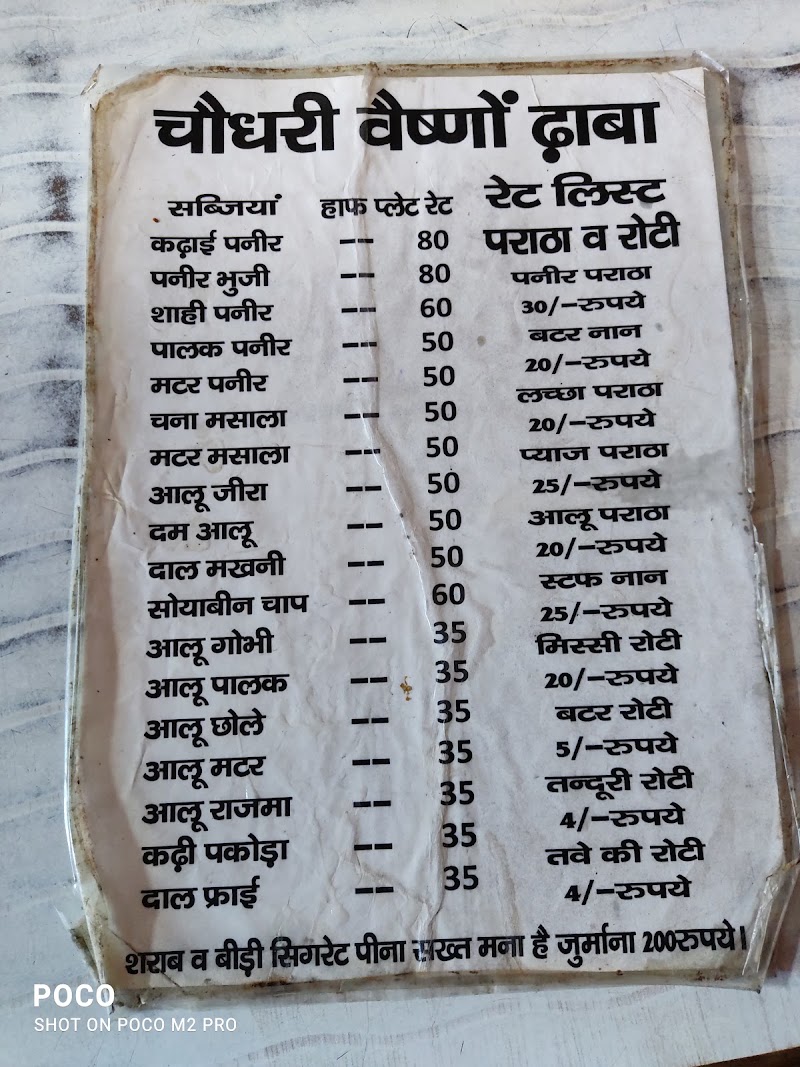 चौधरी वैष्णों ढ़ाबा
सब्जियां हाफ प्लेट रेट
कढ़ाई पनीर -- 80
पनीर भुजी -- 80
शाही पनीर -- 60
पालक पनीर -- 50
मटर पनीर -- 50
चना मसाला -- 50
मटर मसाला -- 50
आलू जीरा -- 50
दम आलू -- 50
दाल मखनी -- 50
सोयाबीन चाप -- 60
आलू गोभी -- 35
आलू पालक -- 35
आलू छोले -- 35
आलू मटर -- 35
आलू राजमा -- 35
कढ़ी पकोड़ा -- 35
दाल फ्राई -- 35
रेट लिस्ट
पराठा व रोटी
पनीर पराठा
30/-रुपये
बटर नान
20/-रुपये
लच्छा पराठा
20/-रुपये
प्याज पराठा
25/-रुपये
आलू पराठा
20/-रुपये
स्टफ नान
25/-रुपये
मिस्सी रोटी
20/-रुपये
बटर रोटी
5/-रुपये
तन्दूरी रोटी
4/-रुपये
तवे की रोटी
4/-रुपये
शराब व बीड़ी सिगरेट पीना सख्त मना है जुर्माना 200रुपये।
POCO
SHOT ON POCO M2 PRO